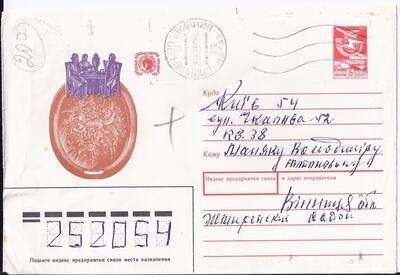 200
5 СССР
ПОЧТА
Куда
Київ 54
вул. Чкалова 52
кв. 38
Кому
Маняку Володимиру
Антоновичу
Индекс предприятия связи и адрес отправителя
Вінниця обл.
район
252054
Пишите индекс предприятия связи места назначения